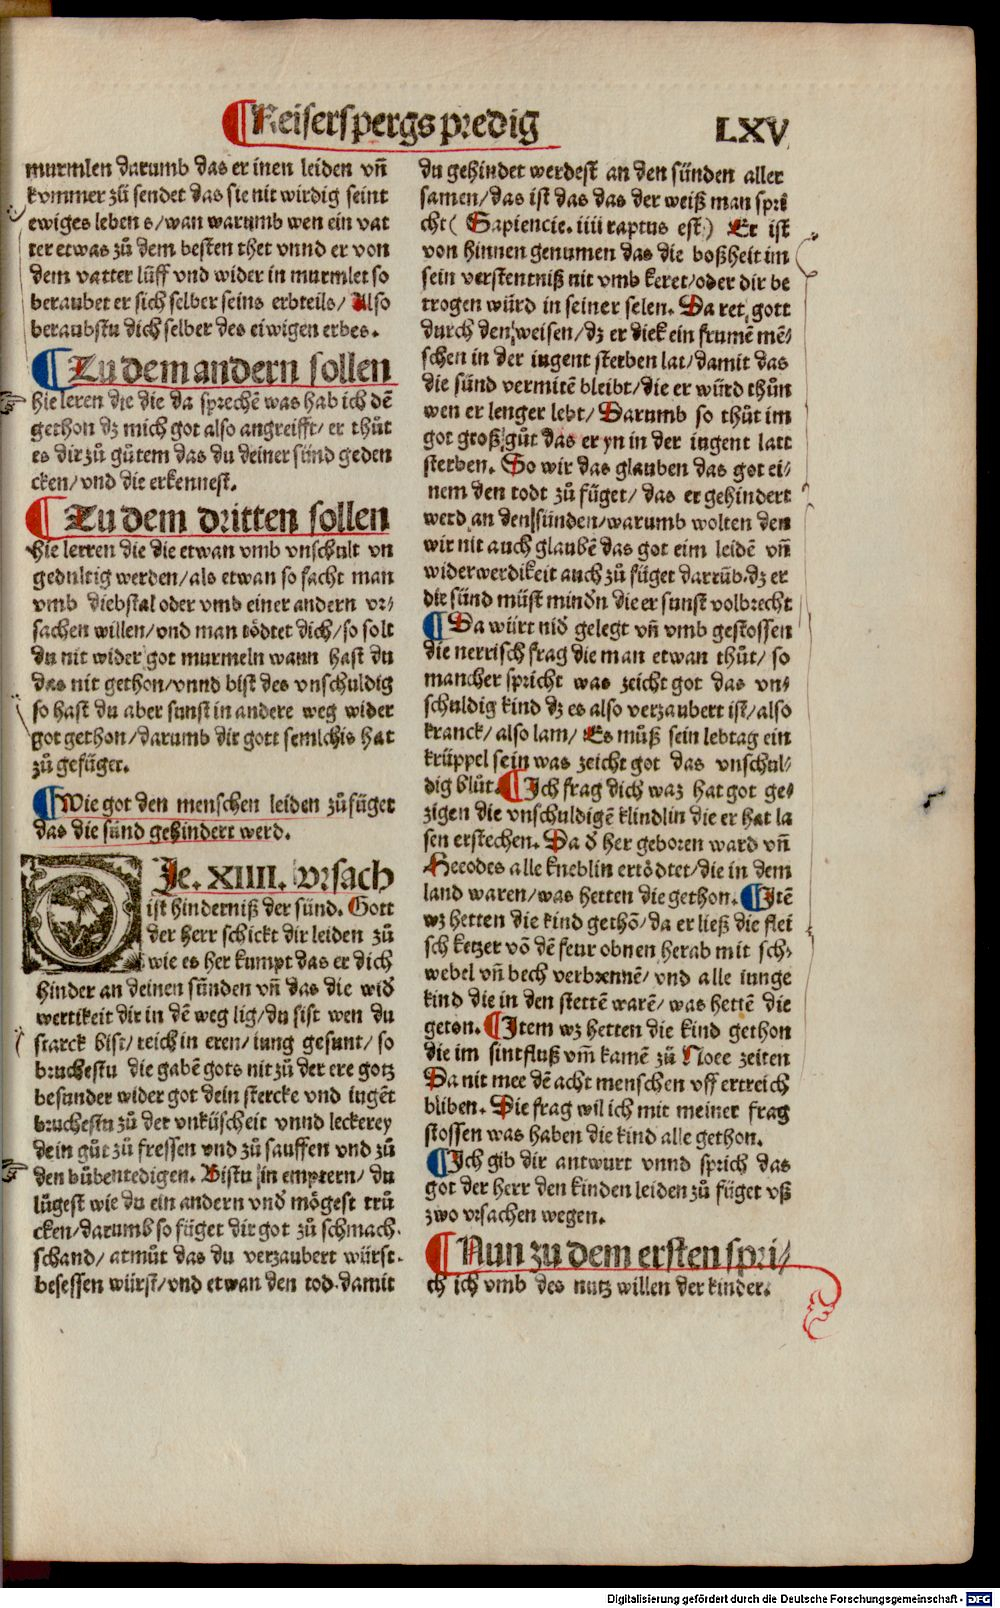 ¶Keiserspergs predig
LXV
murmlen darumb das er inen leiden vn̄
kummer zů sendet das sie nit wirdig seint
ewiges lebens/wan warumb wen ein vat
ter etwas zů dem besten thet vnnd er von
dem vatter lüff vnd wider in murmlet so
beraubet er sich selber seins erbteils/ Also
beraubstu dich selber des eiwigen erbes.
¶Zu dem andern sollen
hie leren die die da sprechē was hab ich dē
gethon dz mich got also angreifft/er thůt
es dir zů gůtem das du deiner sünd geden
cken/vnd die erkennest.
¶Zu dem dritten sollen
hie lerren die die etwan vmb vnschult vn
gedultig werden/als etwan so facht man
vmb diebstal oder vmb einer andern vr⸗
sachen willen/vnd man tödtet dich/so solt
du nit wider got murmeln wann hast du
das nit gethon/vnnd bist des vnschuldig
so hast du aber sunst in andere weg wider
got gethon/darumb dir gott semlchis hat
zů gefüget.
¶Wie got den menschen leiden zů füget
das die sünd gehindert werd.
DJe. XIIII. vrsach
ist hinderniß der sünd. Gott
der herr schickt dir leiden zů
wie es her kumpt das er dich
hinder an deinen sünden vn̄ das die wid̄
wertikeit dir in dē weg lig/du sist wen du
starck bist/reich in eren/iung gesunt/so
bruchestu die gabē gots nit zů der ere gotz
besunder wider got dein stercke vnd iugēt
bruchestu zů der vnküscheit vnnd leckerey
dein gůt zů fressen vnd zů sauffen vnd zů
den bübentedigen. Bistu in emptern/du
lůgest wie du ein andern vnd̄ mögest tru
cken/darumb so füget dir got zů schmach.
schand/armůt das du verzaubert würst.
besessen würst/vnd etwan den tod. damit
du gehindet werdest an den sünden aller
samen/das ist das das der weiß man spri
cht( Sapiencie. iiii raptus est) Er ist
von hinnen genumen das die boßheit im
sein verstentniß nit vmb keret/oder dir be
trogen würd in seiner selen. Da ret gott
durch den weisen/dz er dick ein frumē mē⸗
schen in der iugent sterben lat/damit das
die sünd vermitē bleibt/die er würd thůn
wen er lenger lebt/Darumb so thůt im
got groß gůt das er yn in der iugent latt
sterben. So wir das glauben das got ei⸗
nem den todt zů füget/das er gehindert
werd an den sünden/warumb wolten den
wir nit auch glaubē das got eim leidē vn̄
widerwerdikeit auch zů füget darrūb.dz er
die sünd müst mind̄n die er sunst volbrecht
¶Da würt nid̄ gelegt vn̄ vmb gestossen
die nerrisch frag die man etwan thůt/so
mancher spricht was zeicht got das vn⸗
schuldig kind dz es also verzaubert ist/also
kranck/also lam/ Es můß sein lebtag ein
krüppel sein was zeicht got das vnschul⸗
dig blůt. ¶Ich frag dich waz hat got ge⸗
zigen die vnschuldigē klindlin die er hat la
sen erstechen. Da d̄ her geboren ward vn̄
Herodes alle kneblin ertödtet/die in dem
land waren/was hetten die gethon. ¶Itē
wz hetten die kind gethō/da er ließ die flei
sch ketzer vō dē feur obnen herab mit sch⸗
webel vn̄ bech verbrennē/vnd alle iunge
kind die in den stettē warē/was hettē die
geton. ¶Item wz hetten die kind gethon
die im sintfluß vm̄ kamē zů Noee zeiten
Da nit mee dē acht menschen vff ertreich
bliben. Die frag wil ich mit meiner frag
stossen was haben die kind alle gethon.
¶Ich gib dir antwurt vnnd sprich das
got der herr den kinden leiden zů füget vß
zwo vrsachen wegen.
¶Nun zu dem ersten spri⸗
ch ich vmb des nutz willen der kinder.
Digitalisierung gefördert durch die Deutsche Forschungsgemeinschaft - DFG